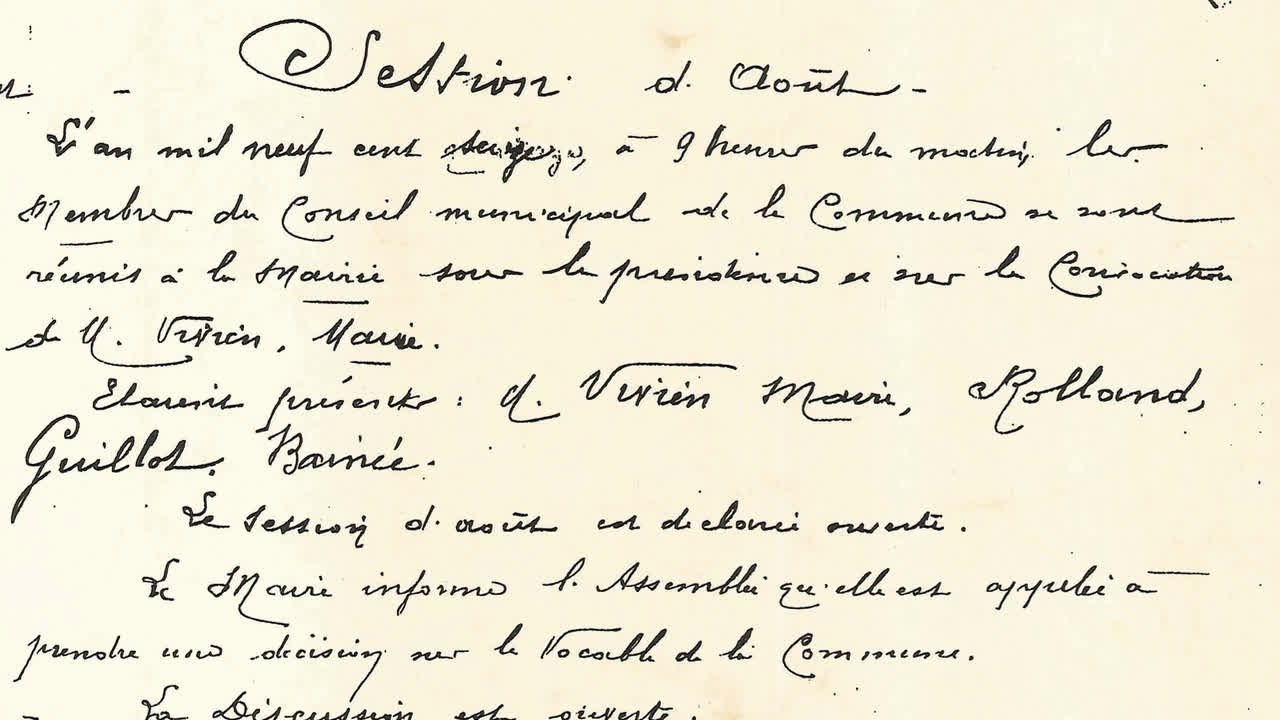 Session d'Août -
L'an mil neuf cent seize, à 9 heures du matin, les
Membres du Conseil municipal de la Commune se sont
réunis à la Mairie sous la présidence et sur la Convocation
de M. Vivien, Maire.
Etaient présents : M. Vivien Maire, Rolland,
Guillot, Barrié.
La Session d'août est déclarée ouverte.
Le Maire informe l'Assemblée qu'elle est appelée à
prendre une décision sur le Vocable de la Commune.
La Discussion est ouverte.